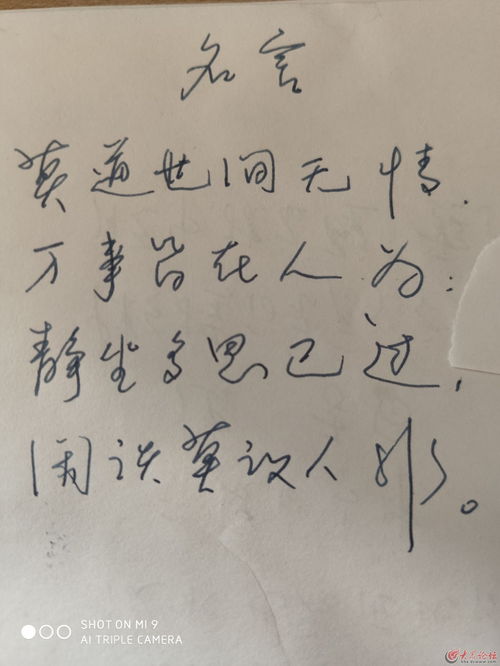 名言
莫道世间无情.
万事皆在人为:
静坐多思己过,
闲谈莫议人非。
SHOT ON MI 9
AI TRIPLE CAMERA
大众论坛
bbs.dzwww.com